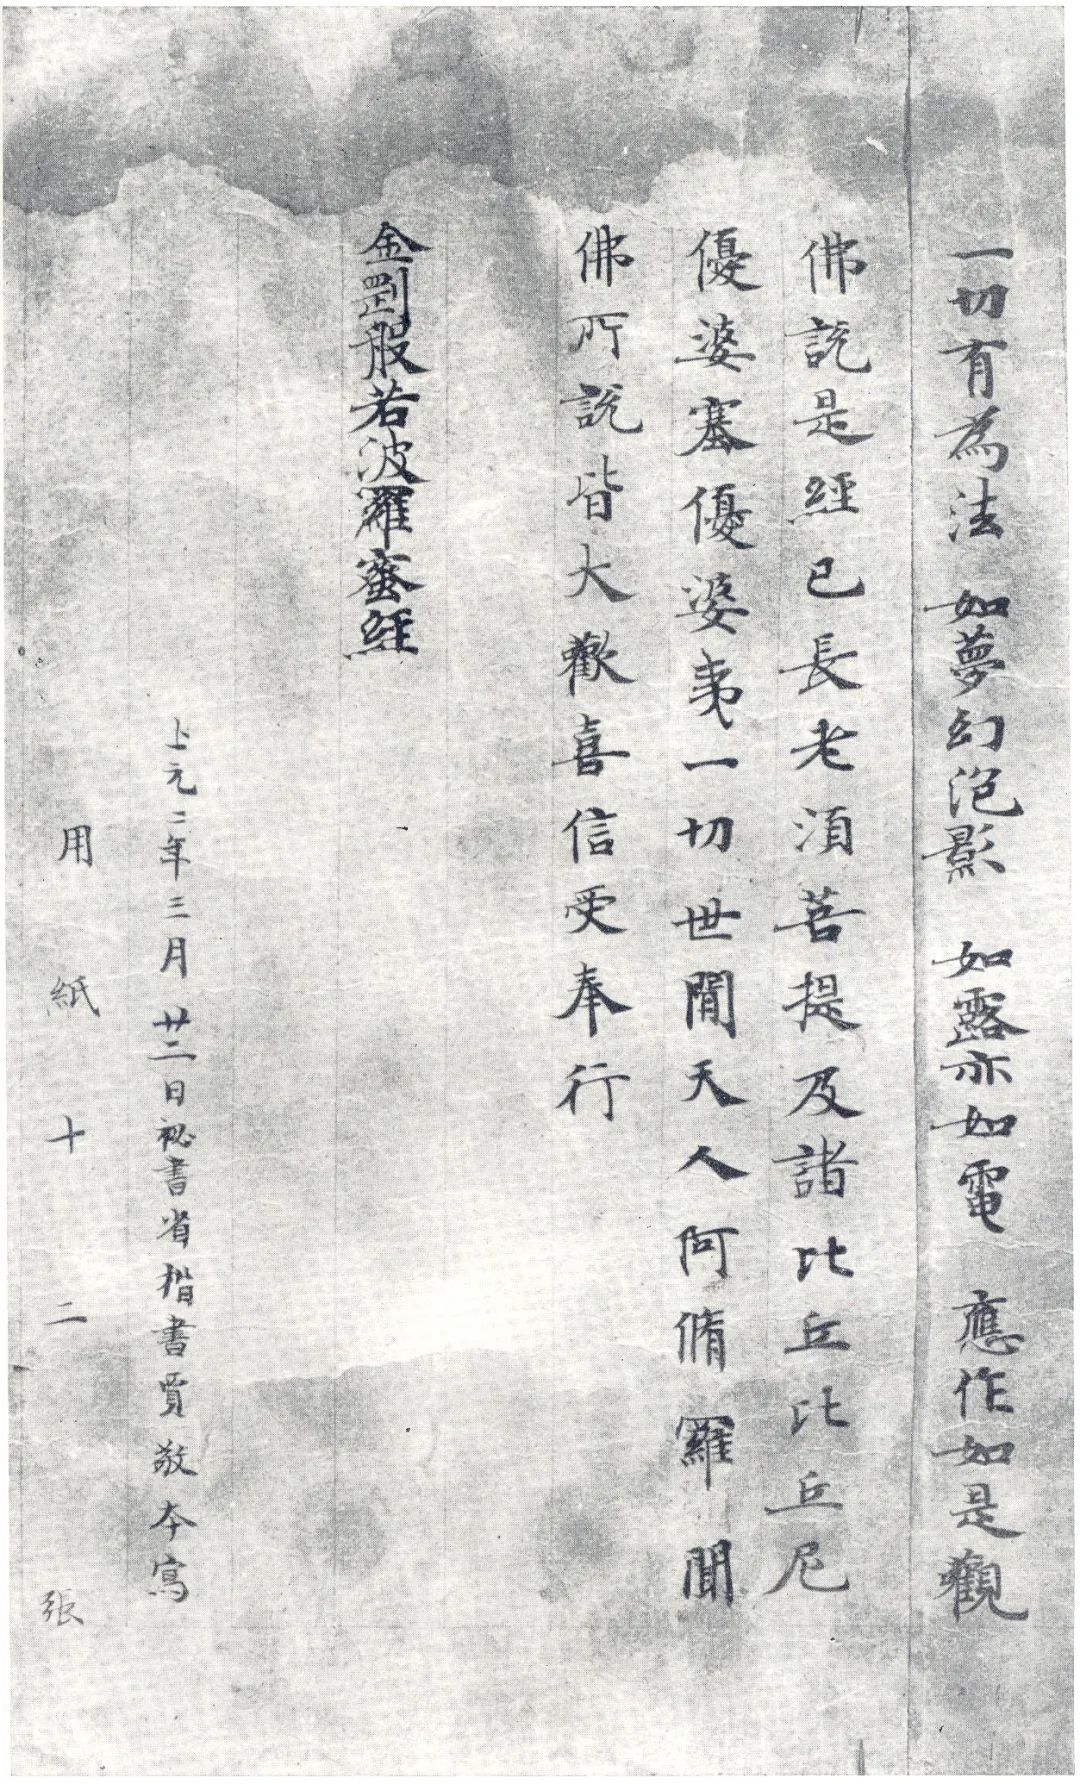 一切有為法 如夢幻泡影 如露亦如電 應作如是觀
佛說是經已長老湏菩提及諸比丘比丘尼
優婆塞優婆夷一切世閒天人阿脩羅聞
佛所說皆大歡喜信受奉行
金剛般若波羅蜜經
上元二年三月廿二日祕書省楷書賈敬夲寫
用紙十二張